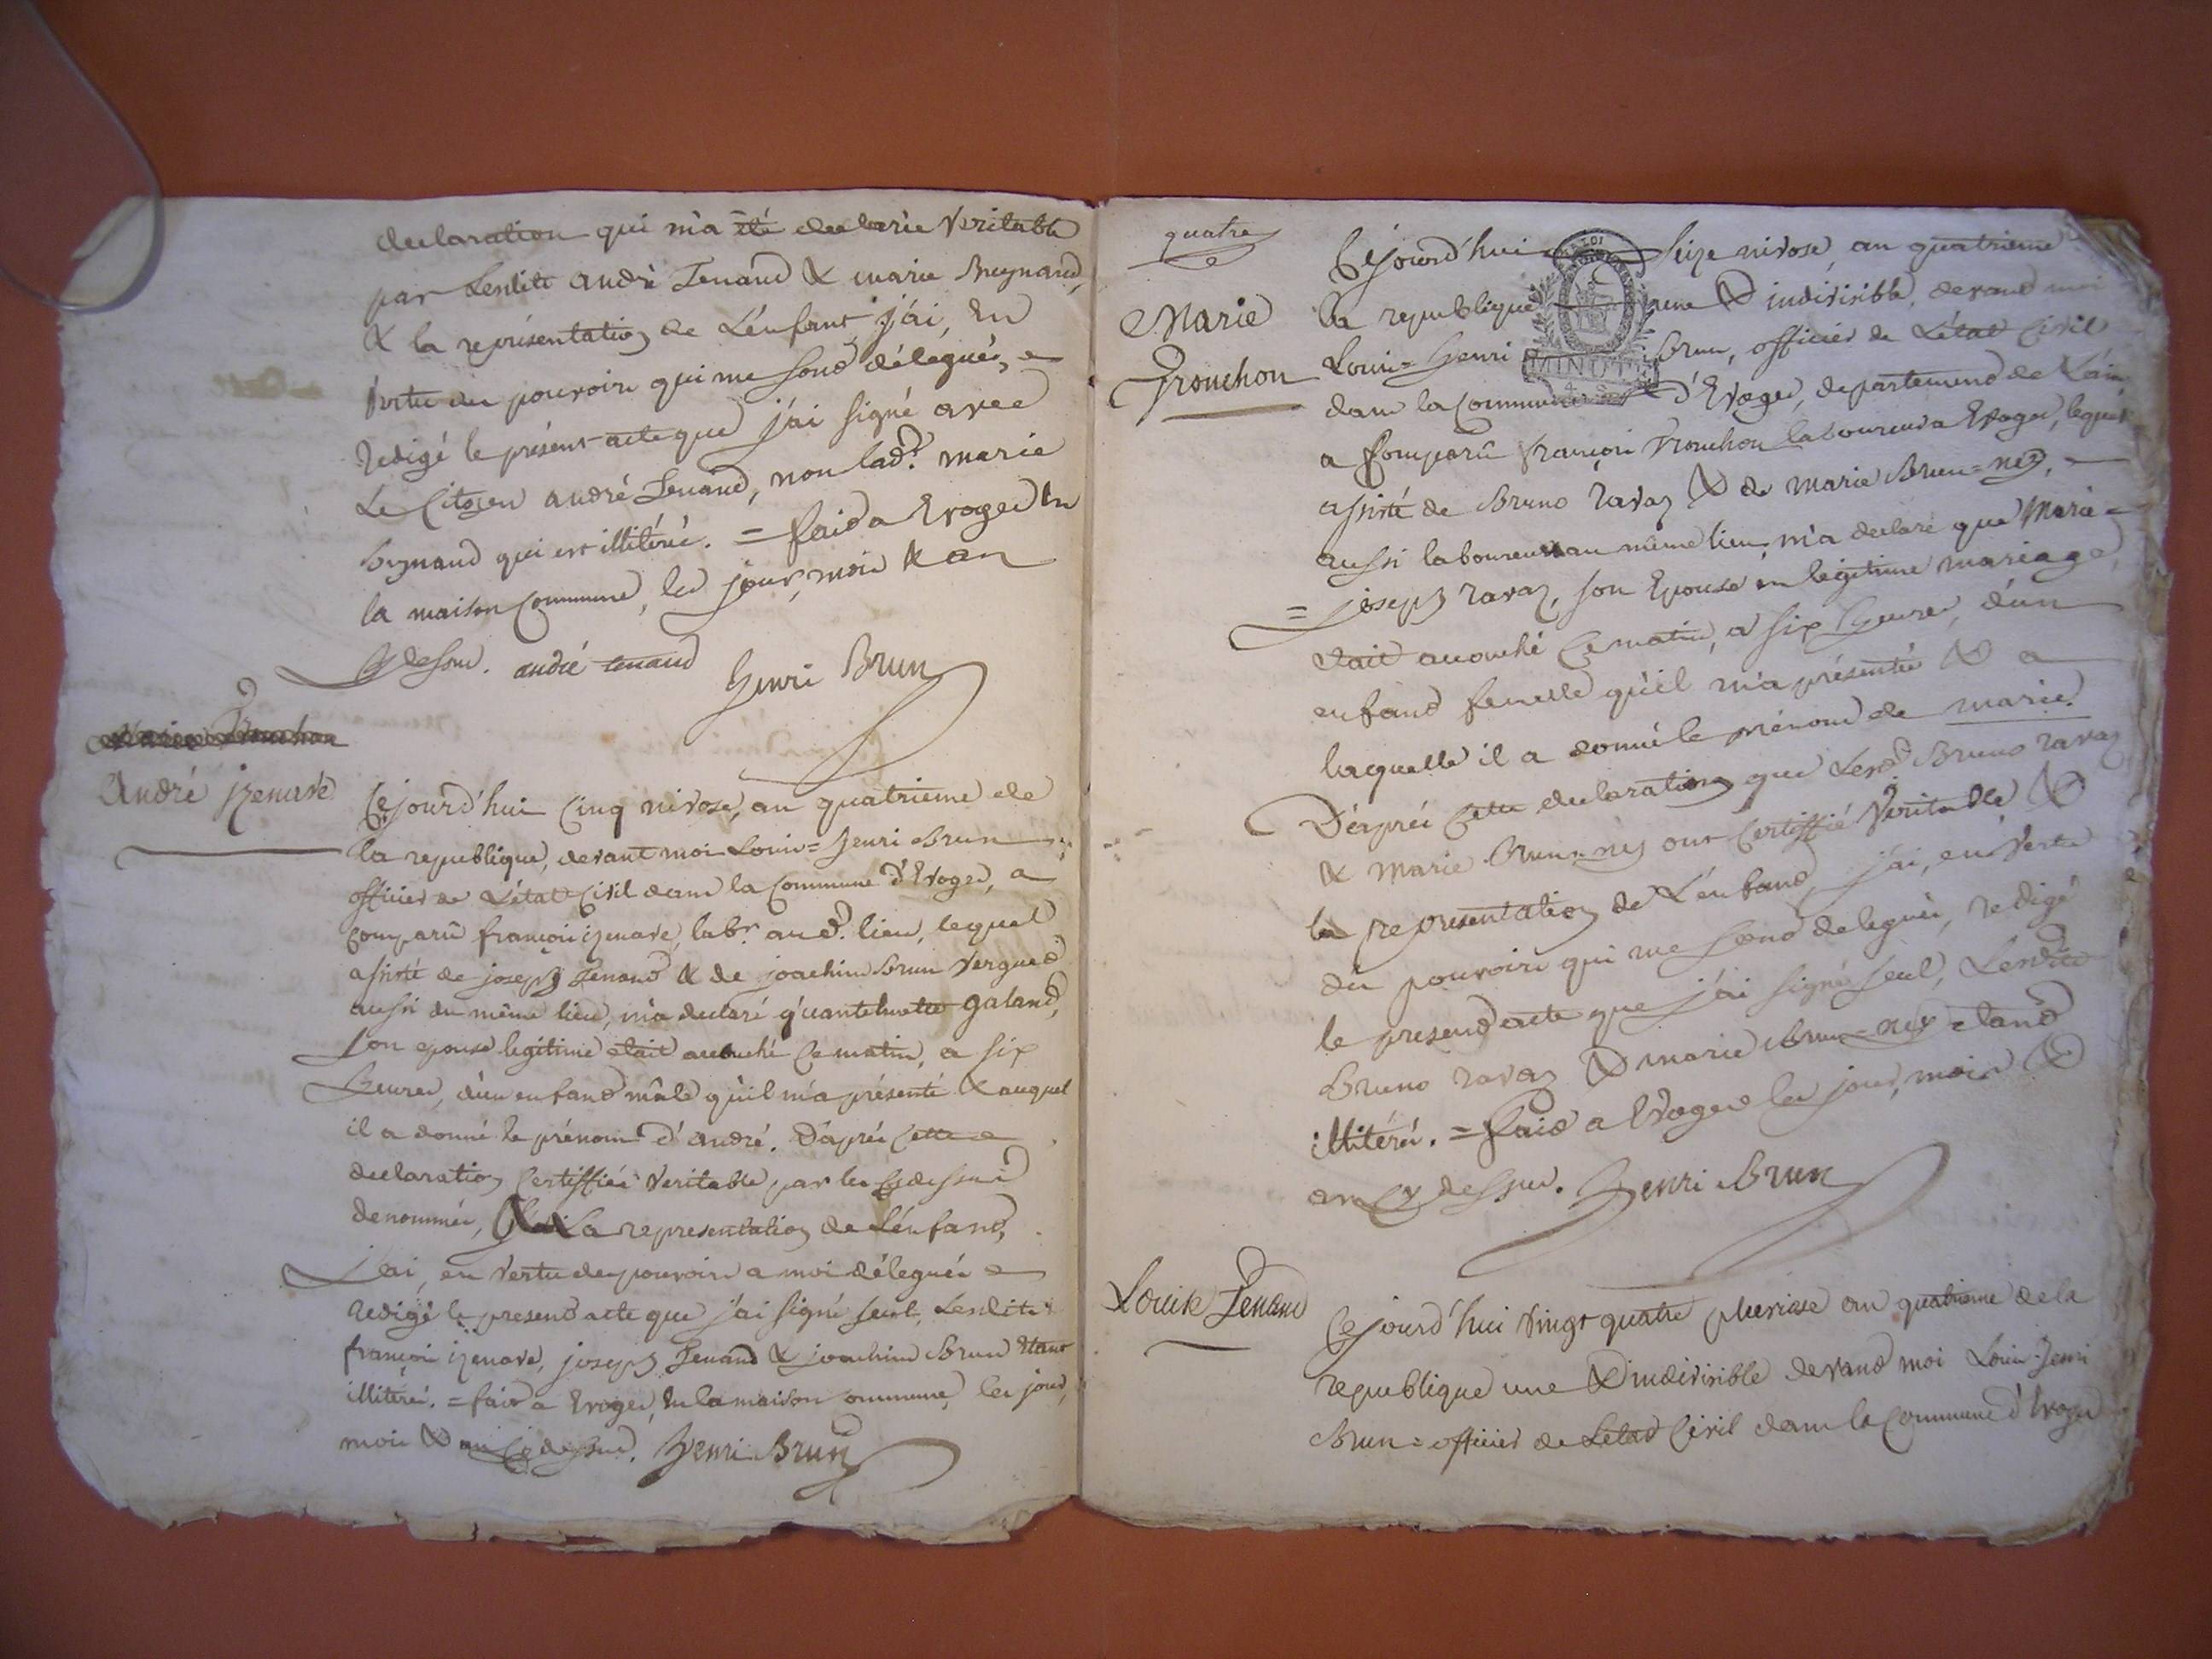 declaration qui m'a été declarée veritable
par lesdits andré Tenand & marie Buynand,
& la représentation de L'enfant, j'ai, En
Vertu des pouvoirs qui me sont délégués,
redigé le présent acte que j'ai signé avec
Le Citoyen andré Tenand, non lad.e marie
buynand qui est illitérée. = fait a Evoges En
la maison Commune, les jour, mois & an
Cy dessus. andré tenand Henri Brun
Marie Trouchon
André jzenave
Cejourd'hui Cinq nivose, an quatrieme de
la republique, devant moi Louis=Henri Brun
officier de L'état Civil dans la Commune d'Evoges, a
Comparû françois jzenave, labr. aud. lieu, lequel
assisté de joseph Tenand & de joachim Brun Vergued
aussi du même lieu, m'a declaré qu'anthelmette galand,
son epouse legitime etait acouché Ce matin, a six
heures, d'un enfant mâle qu'il m'a présenté & auquel
il a donné le prénom d'andré. D'après Cette
declaration Certiffiée veritable par les Cy dessus
denommés, & La representation de L'énfant,
J'ai, en vertu des pouvoirs a moi délégués
redigé le present acte que j'ai signé seul, Lesdits
françois jzenave, joseph Tenand & joachim Brun étant
illiterés. = fait a Evoges, En la maison commune, les jour,
mois & an Cy dessus. Henri Brun
quatre
Marie
Trouchon
Cejourd'hui seize nivose, an quatrieme
la republique une & indivisible, devant moi
Louis=Henri Brun, officier de L'état Civil
dans la Commune d'Evoges, departement de L'ain
a Comparû françois Trouchon laboureur a Evoges, lequel
assisté de Bruno ravaz & de marie Brun=ney,
aussi laboureurs au même lieu, m'a declaré que Marie
= joseph ravaz, son Epouse en legitime mariage,
etait acouché Ce matin, a six heures, d'un
enfant femelle qu'il m'a présentée & a
laquelle il a donné le prénom de marie.
D'après Cette declaration que Lesd. Bruno ravaz
& Marie Brun=ney ont Certiffié veritable &
la representation de L'enfant, j'ai, en vertu
des pouvoirs qui me sont delegués, redigé
le present acte que j'ai signé seul, Lesdits
Bruno ravaz & marie Brun=ney etant
illitérés. = fait a Evoges les jour, mois &
an Cy dessus. Henri Brun
Louise Tenand
Cejourd'hui vingt quatre pluviose an quatrieme de la
republique une & indivisible devant moi Louis-Henri
Brun = officier de L'etat Civil dans la Commune d'Evoges